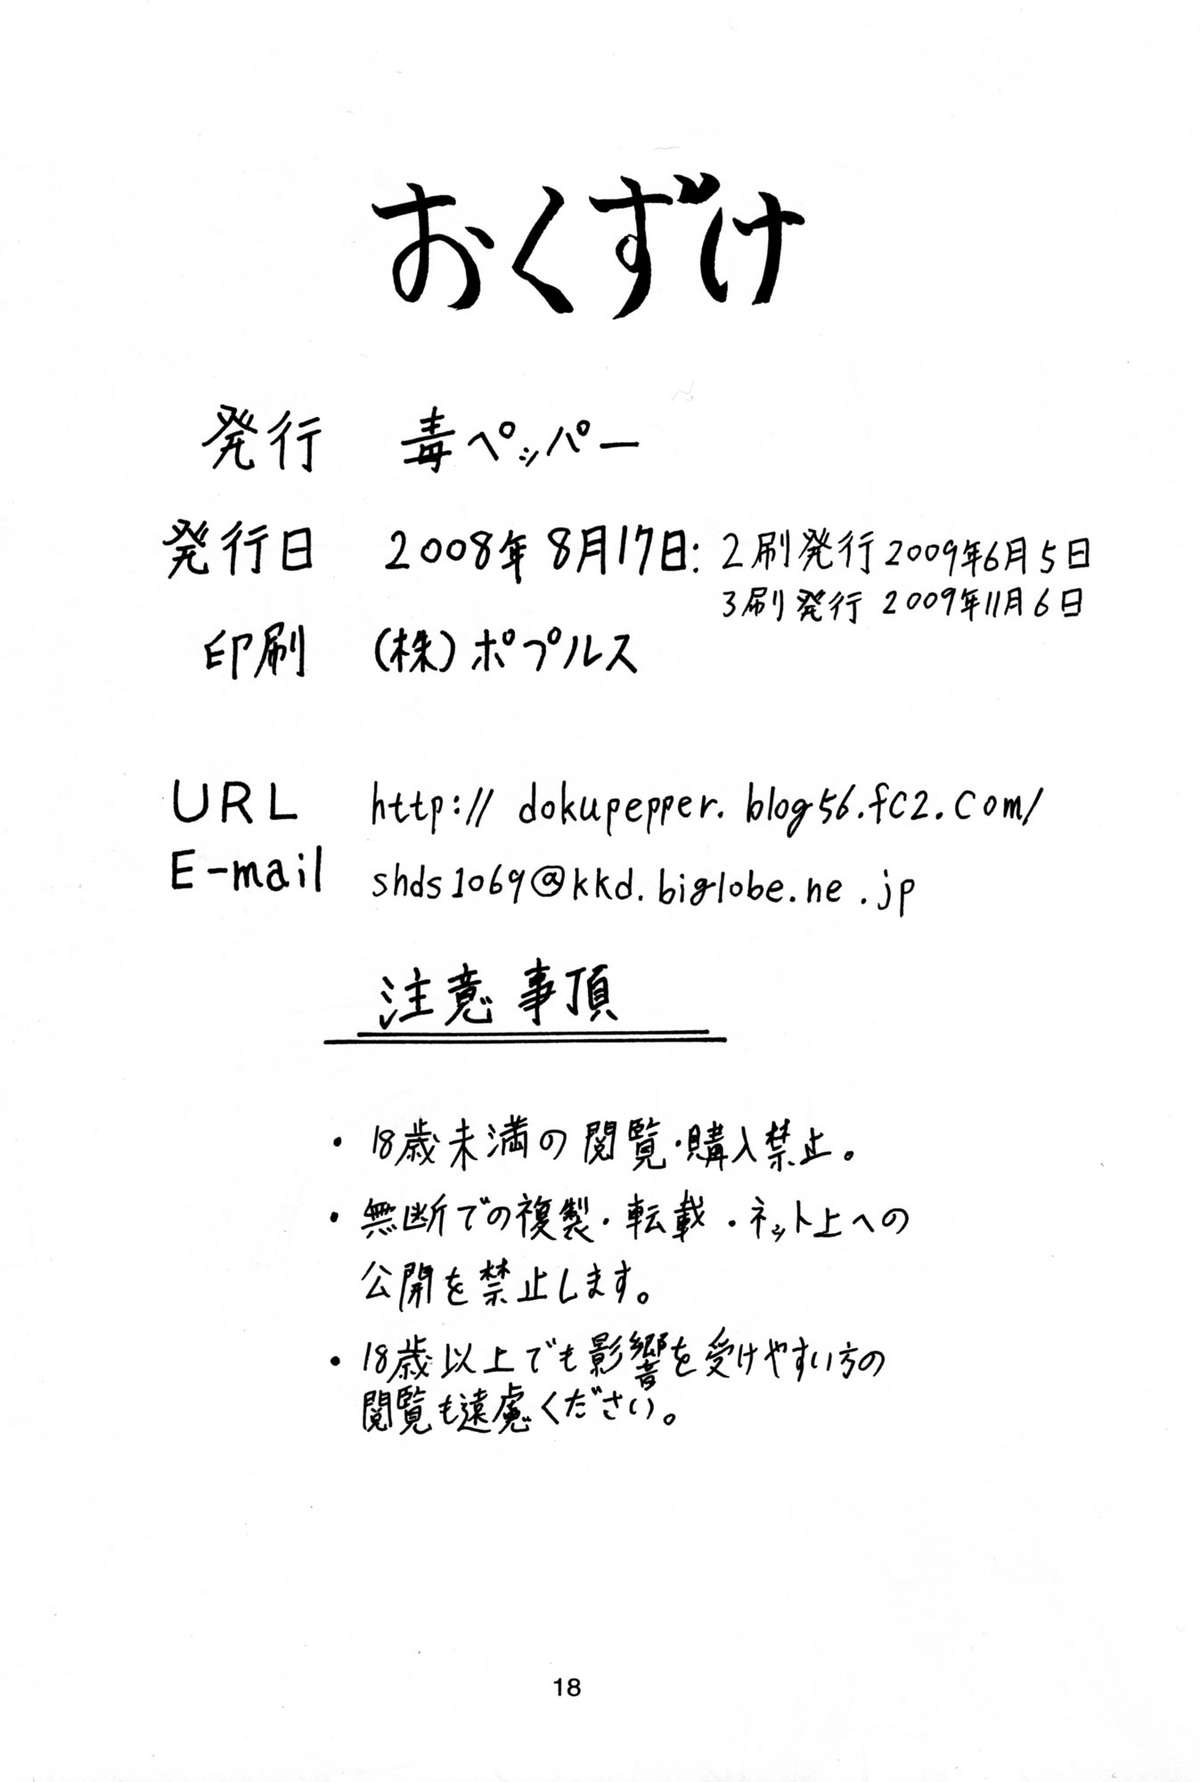 おくずけ
発行 毒ペッパー
発行日 2008年8月17日: 2刷発行2009年6月5日
3刷発行 2009年11月6日
印刷 (株)ポプルス
URL http://dokupepper.blog56.fc2.com/
E-mail shds1069@kkd.biglobe.ne.jp
注意事項
・18歳未満の閲覧・購入禁止。
・無断での複製・転載・ネット上への
公開を禁止します。
・18歳以上でも影響を受けやすい方の
閲覧も遠慮ください。
18